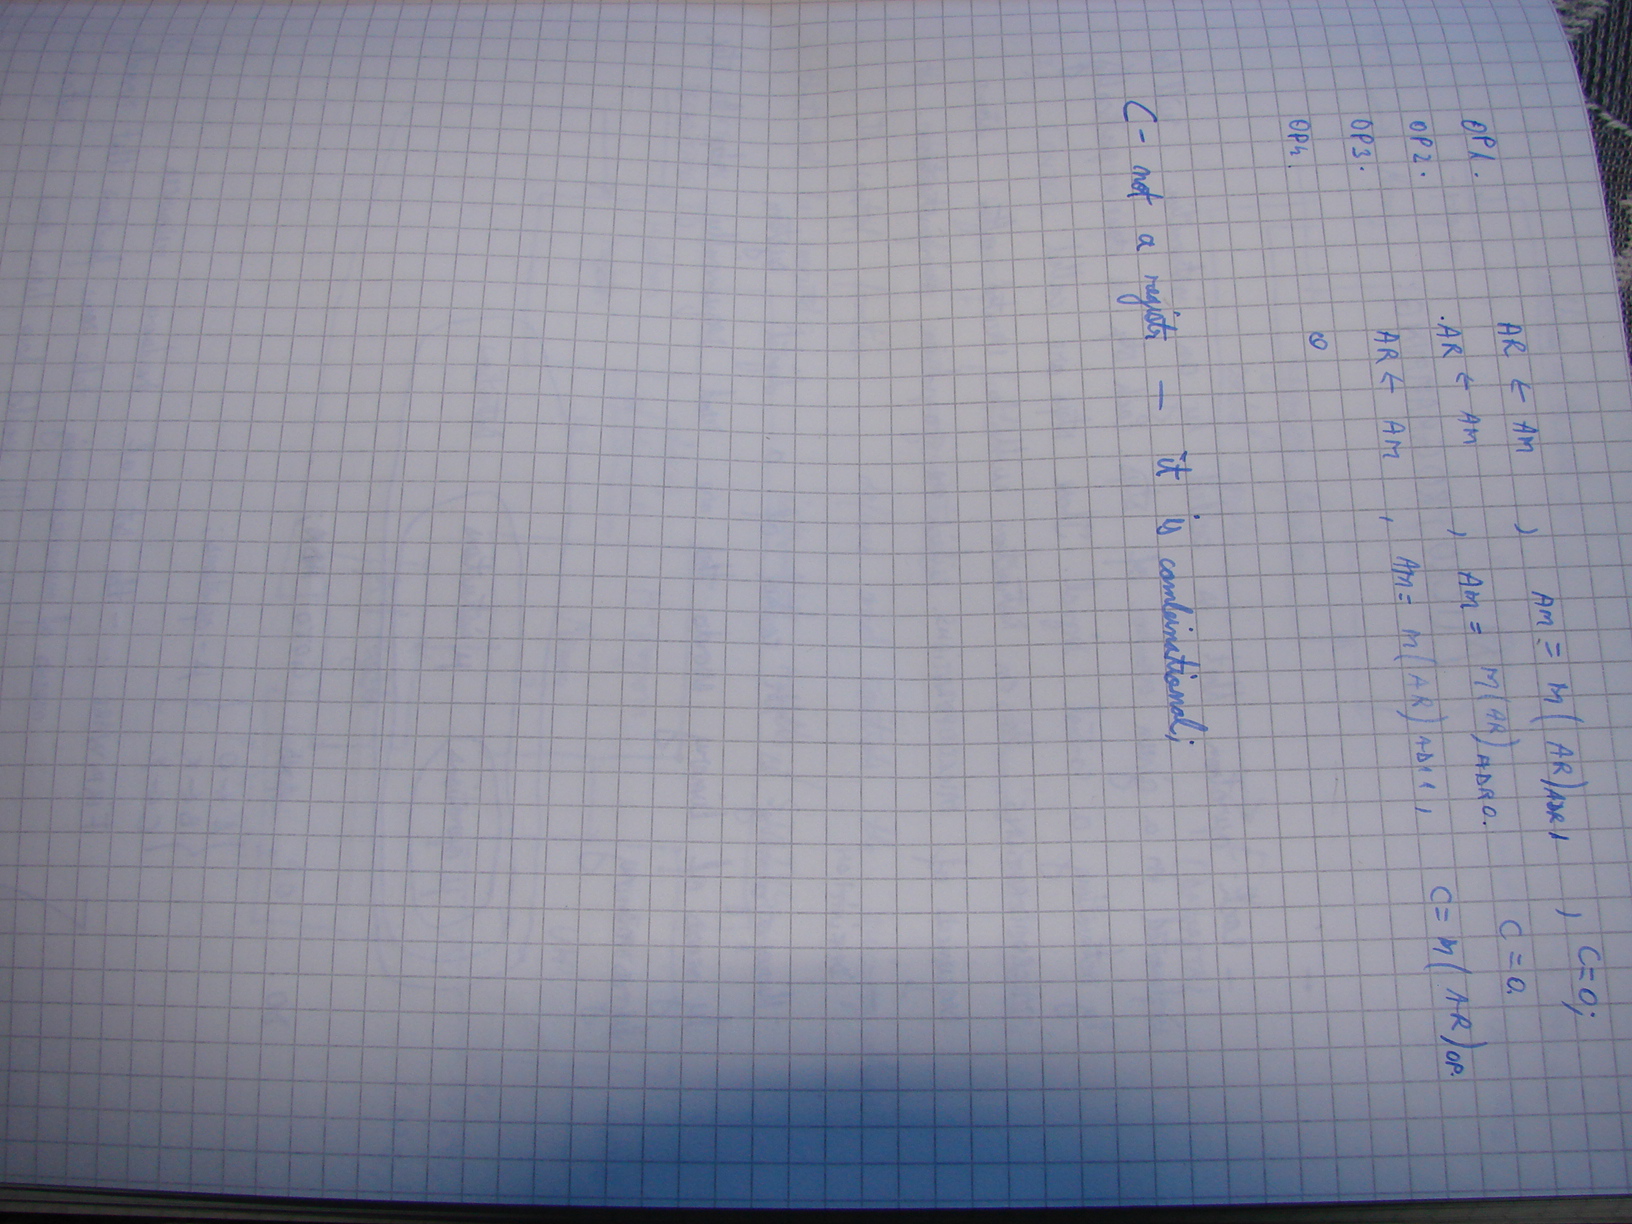 OP1. AR ← AM , AM = M(AR)ADR1 , C=0;
OP2. AR ← AM , AM = M(AR)ADR0. C=0,
OP3. AR ← AM , AM = M(AR)ADR1, C=M(AR)OP.
OP4. 0
C - not a registr — it is combinational;